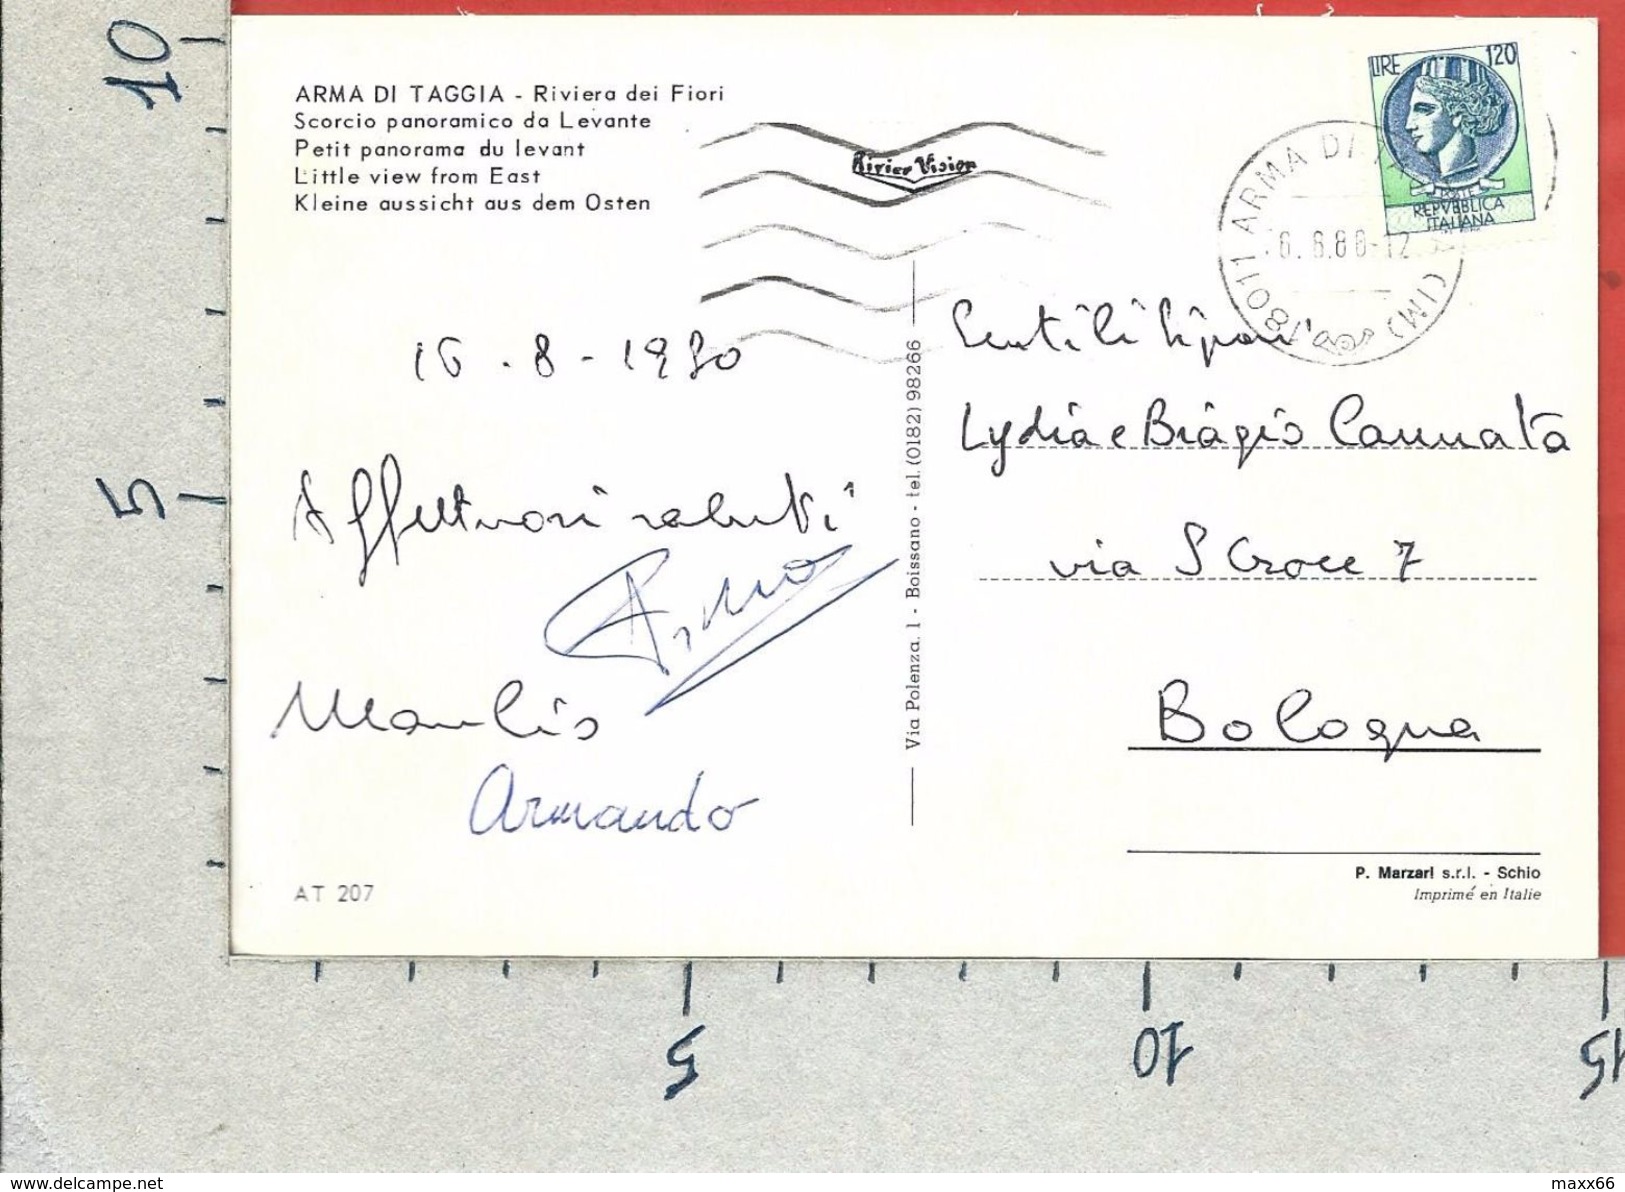 ARMA DI TAGGIA - Riviera dei Fiori
Scorcio panoramico da Levante
Petit panorama du levant
Little view from East
Kleine aussicht aus dem Osten
River Vision
LIRE 120
POSTE
REPVBBLICA
ITALIANA
18011 ARMA DI (IM)
6.8.80-12
16.8-1980
Affettuosi saluti
Manlio
Armando
AT 207
Via Polenza, 1 - Boissano - tel. (0182) 98266
Gentili Sigori
Lydia e Biagio Cannata
via S Croce 7
Bologna
P. Marzari s.r.l. - Schio
Imprimé en Italie
10
5
5
10
15
www.delcampe.net
maxx66